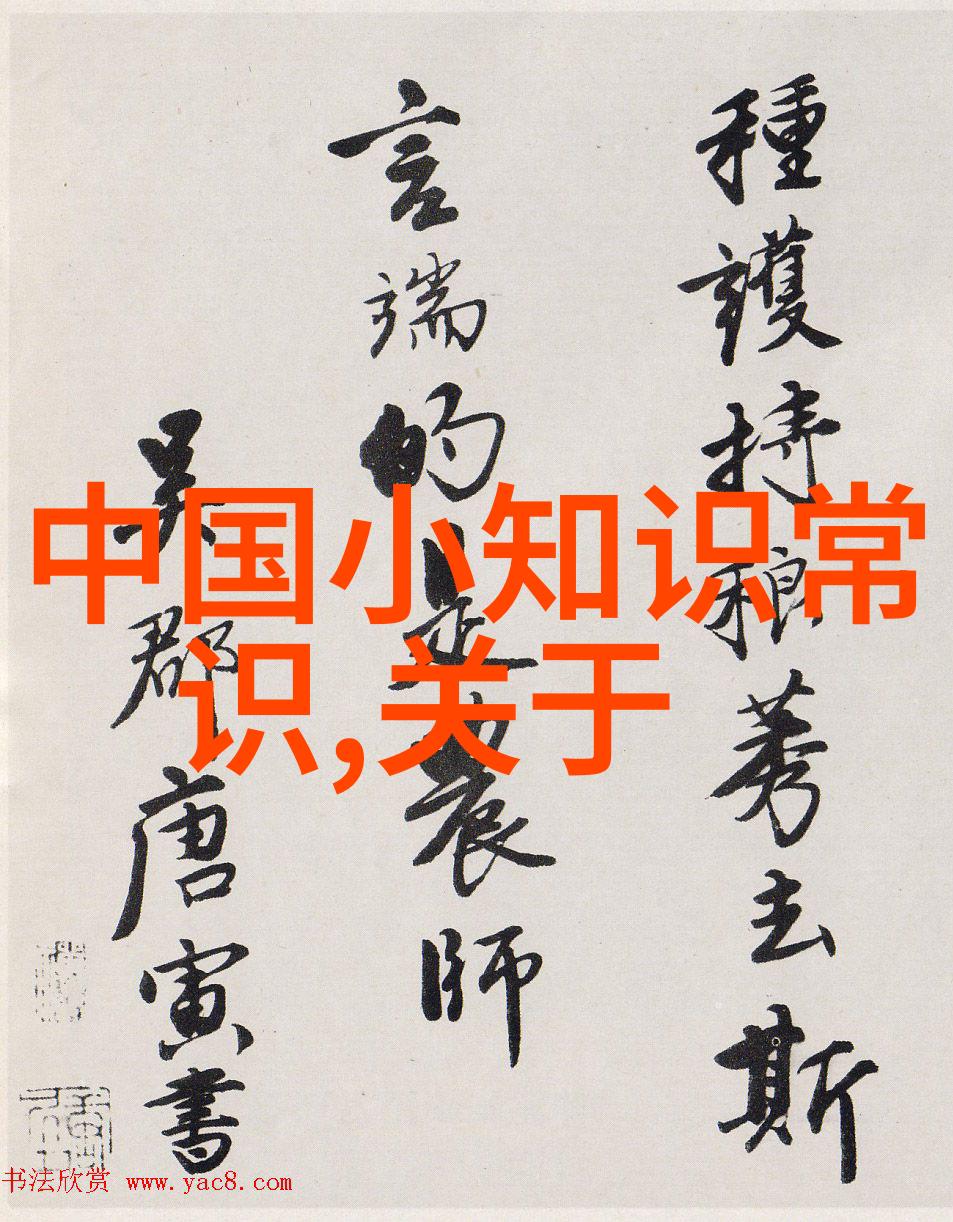 種護持稂莠去斯
言端的是農師
吳郡唐寅書
中国小知识常
识,关于
书法欣赏 www.yac8.com